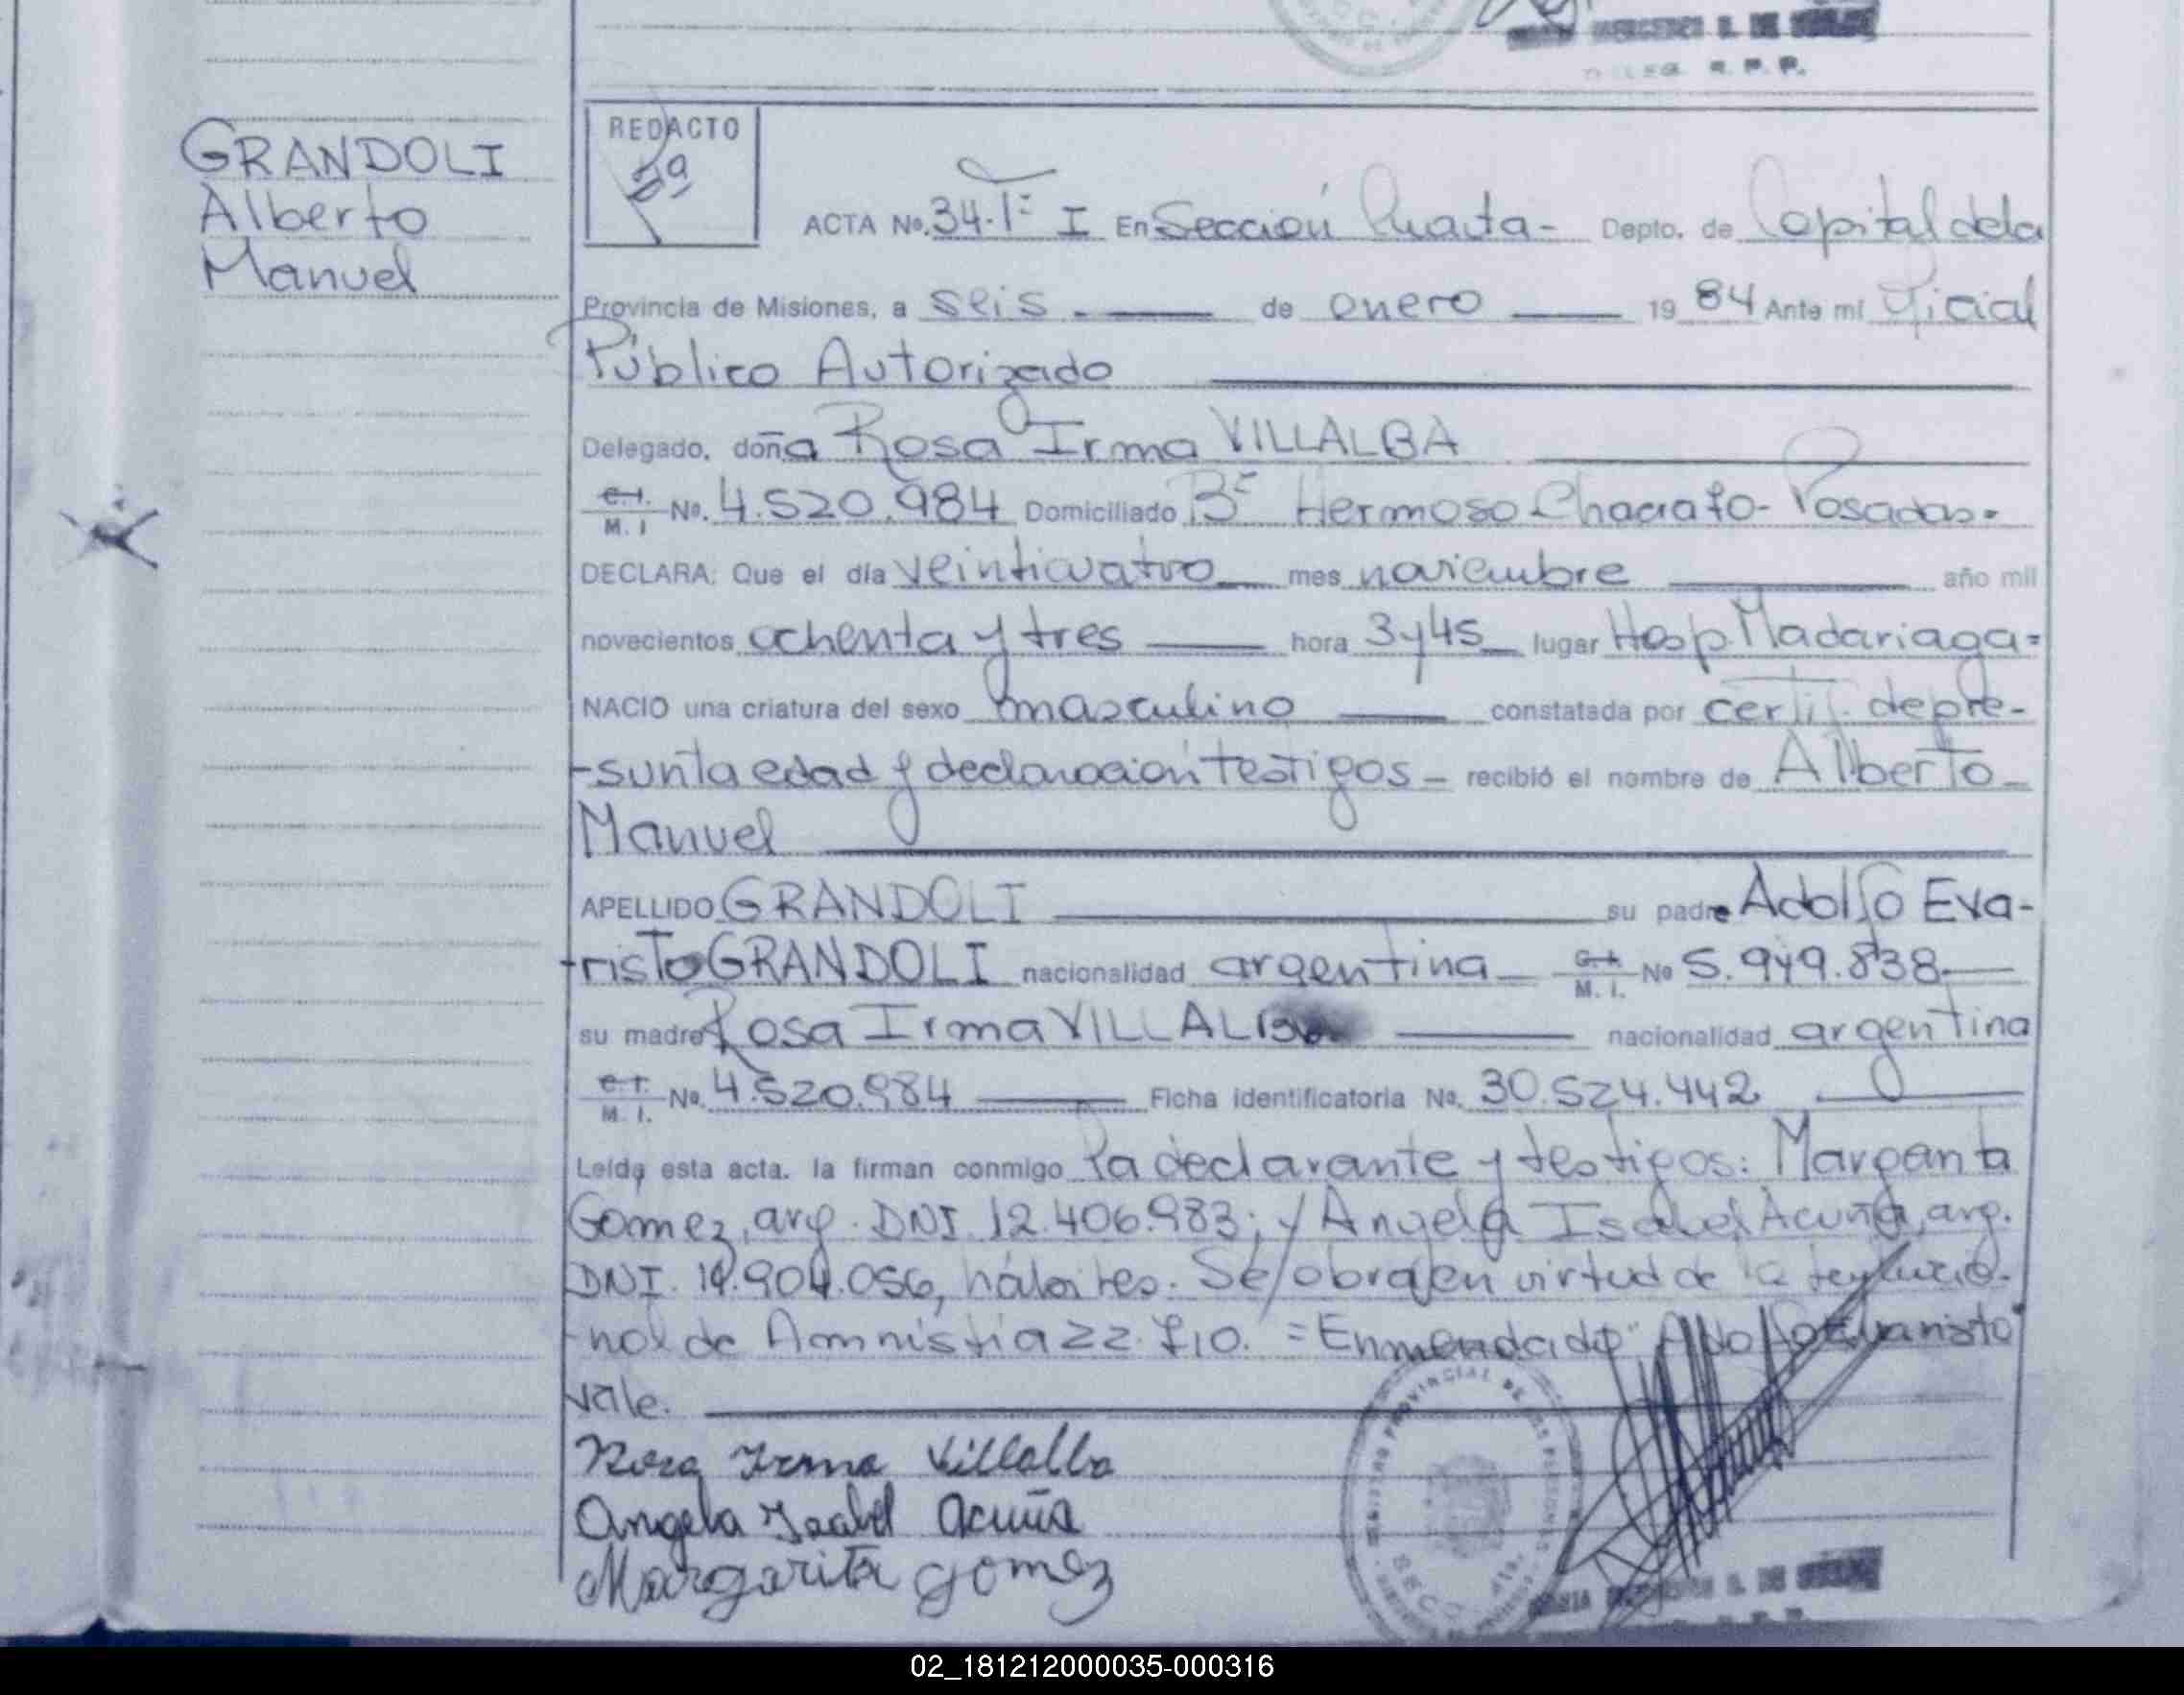 R. P. P.
GRANDOLI
Alberto
Manuel
REDACTO
59
ACTA No. 34-Tº I En Sección Cuarta- Depto. de Capital de la
Provincia de Misiones, a seis de enero 19 84 Ante mí Oficial
Público Autorizado
Delegado, doña Rosa Irma VILLALBA
C.I. M. I No. 4.520.984 Domiciliado Bº Hermoso Chacrato- Posadas.
DECLARA: Que el día veinticuatro mes noviembre año mil
novecientos ochenta y tres hora 3y45 lugar Hosp. Madariaga=
NACIO una criatura del sexo masculino constatada por certif. de pre-
-sunta edad y declaración testigos- recibió el nombre de Alberto
Manuel
APELLIDO GRANDOLI su padre Adolfo Eva-
-risto GRANDOLI nacionalidad argentina C.I. M. I. No 5.949.838
su madre Rosa Irma VILLALBA nacionalidad argentina
C.I. M. I. No. 4.520.984 Ficha identificatoria No. 30.524.442
Leída esta acta. la firman conmigo la declarante y testigos: Margarita
Gomez, arg. DNI. 12.406.983; y Angela Isabel Acuña, arg.
DNI. 904.056, hábiles. Se obra en virtud de la
de Amnistia 22.710. =Enmendado" Evaristo"
vale.
Rosa Irma Villalba
Angela Isabel Acuña
Margarita gomez
REGISTRO PROVINCIAL DE LAS PERSONAS
02_181212000035-000316